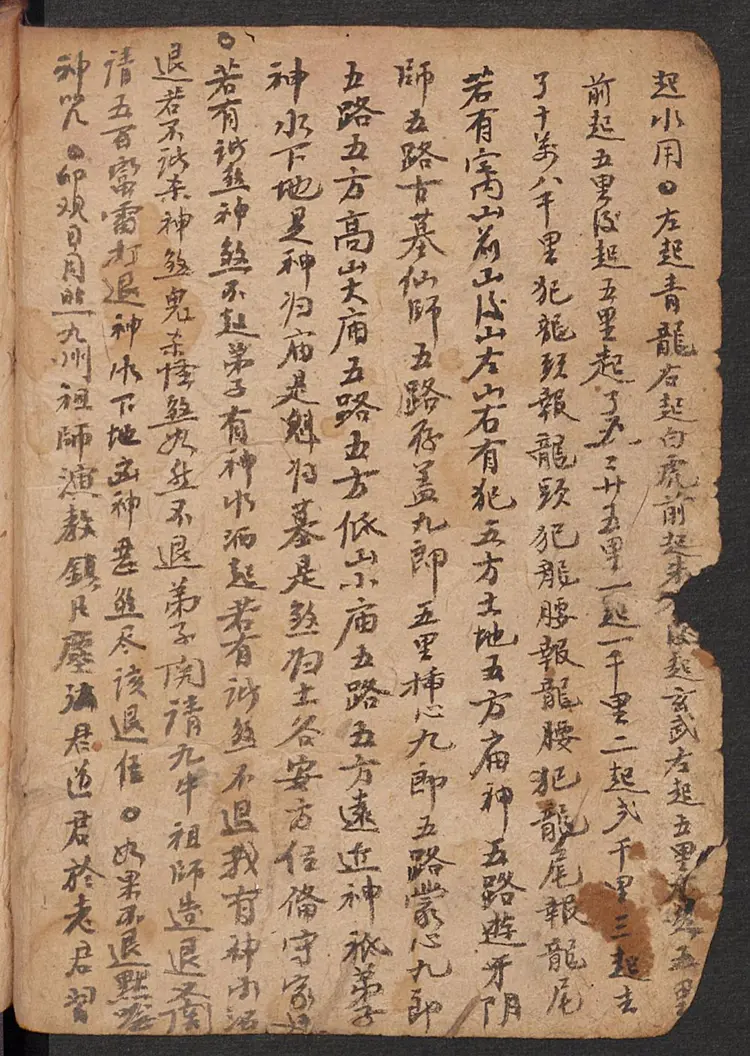 起水用。左起青龍右起白虎前起朱後起玄武左起五里右起五里
前起五里後起五里起了五二廿五里一起一千里二起弍千里三起去
了十萬八千里犯龍頭報龍頭犯龍腰報龍腰犯龍尾報龍尾
若有窩山前山後山左山右有犯五方土地五方庙神五路遊牙阴
師五路古墓仙師五路存盖九郎五里揷心九郎五路蒙心九郎
五路五方高山大庙五路五方低山小庙五路五方遠近神祇弟子
神水下地是神归庙是魁归墓是煞归土各安方位俻守家
。若有凶煞神煞不起弟子有神水洒起若有凶煞不退我有神水洒
退若不凶神煞鬼怪煞如然不退弟子関請九牛祖師造退
請五百雷打退神水下地凶神恶煞尽该退位。如果不退黙
神咒。仰观日月照九州祖師演教鎮凡塵法君道君於老君習